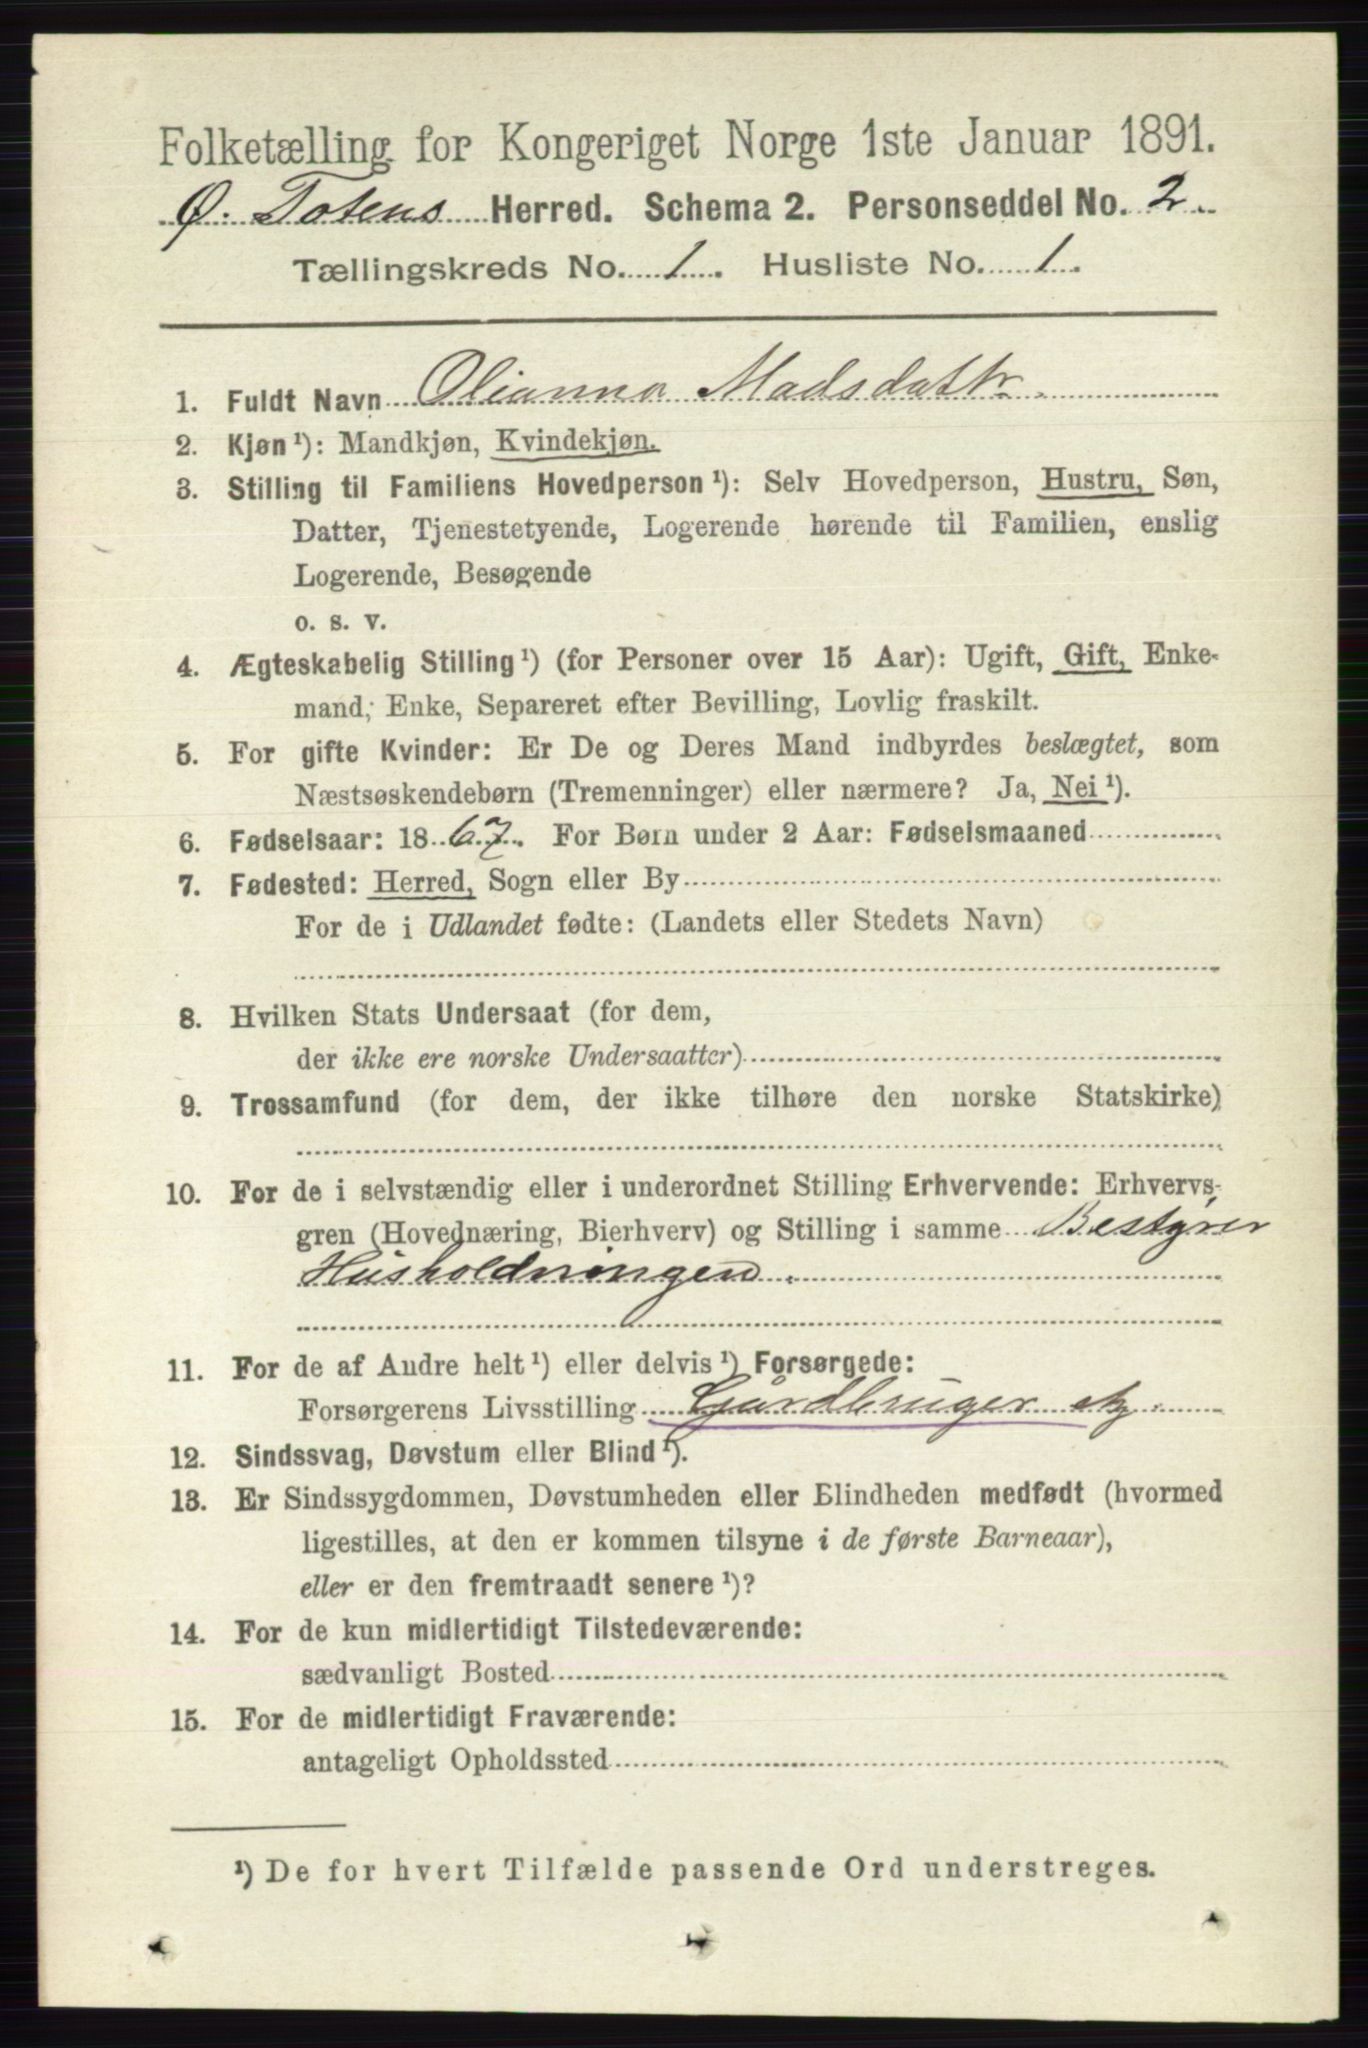 Folketælling for Kongeriget Norge 1ste Januar 1891.
Ø. Totens Herred. Schema 2. Personseddel No. 2.
Tællingskreds No. 1. Husliste No. 1.
1. Fuldt Navn Olianna Madsdattr.
2. Kjøn ¹): Mandkjøn, Kvindekjøn.
3. Stilling til Familiens Hovedperson ¹): Selv Hovedperson, Hustru, Søn,
Datter, Tjenestetyende, Logerende hørende til Familien, enslig
Logerende, Besøgende
o. s. v.
4. Ægteskabelig Stilling ¹) (for Personer over 15 Aar): Ugift, Gift, Enke-
mand, Enke, Separeret efter Bevilling, Lovlig fraskilt.
5. For gifte Kvinder: Er De og Deres Mand indbyrdes beslægtet, som
Næstsøskendebørn (Tremenninger) eller nærmere? Ja, Nei ¹).
6. Fødselsaar: 1867. For Børn under 2 Aar: Fødselsmaaned
7. Fødested: Herred, Sogn eller By
For de i Udlandet fødte: (Landets eller Stedets Navn)
8. Hvilken Stats Undersaat (for dem,
der ikke ere norske Undersaatter)
9. Trossamfund (for dem, der ikke tilhøre den norske Statskirke)
10. For de i selvstændig eller i underordnet Stilling Erhvervende: Erhvervs-
gren (Hovednæring, Bierhverv) og Stilling i samme Bestyrer
Husholdningen.
11. For de af Andre helt ¹) eller delvis ¹) Forsørgede:
Forsørgerens Livsstilling Gårdbruger
12. Sindssvag, Døvstum eller Blind ¹).
13. Er Sindssygdommen, Døvstumheden eller Blindheden medfødt (hvormed
ligestilles, at den er kommen tilsyne i de første Barneaar),
eller er den fremtraadt senere ¹)?
14. For de kun midlertidigt Tilstedeværende:
sædvanligt Bosted
15. For de midlertidigt Fraværende:
antageligt Opholdssted
¹) De for hvert Tilfælde passende Ord understreges.